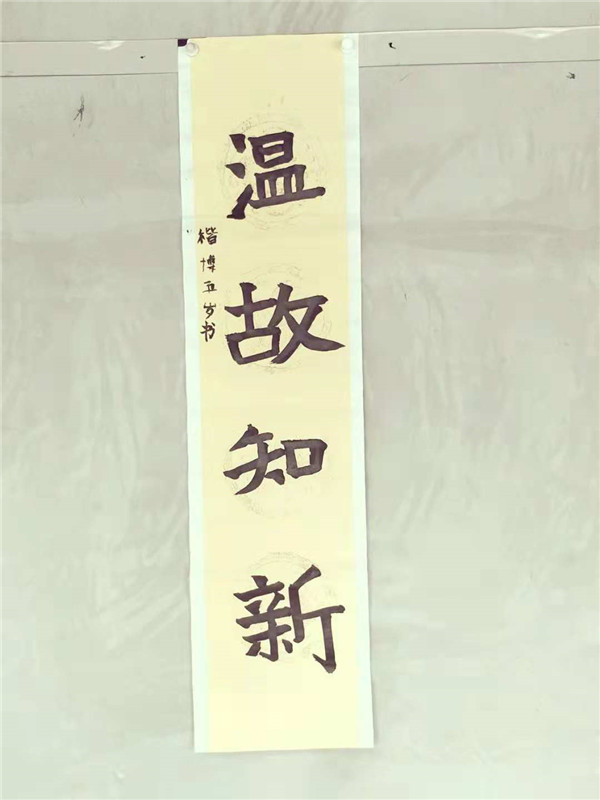 温故知新
楷博五岁书